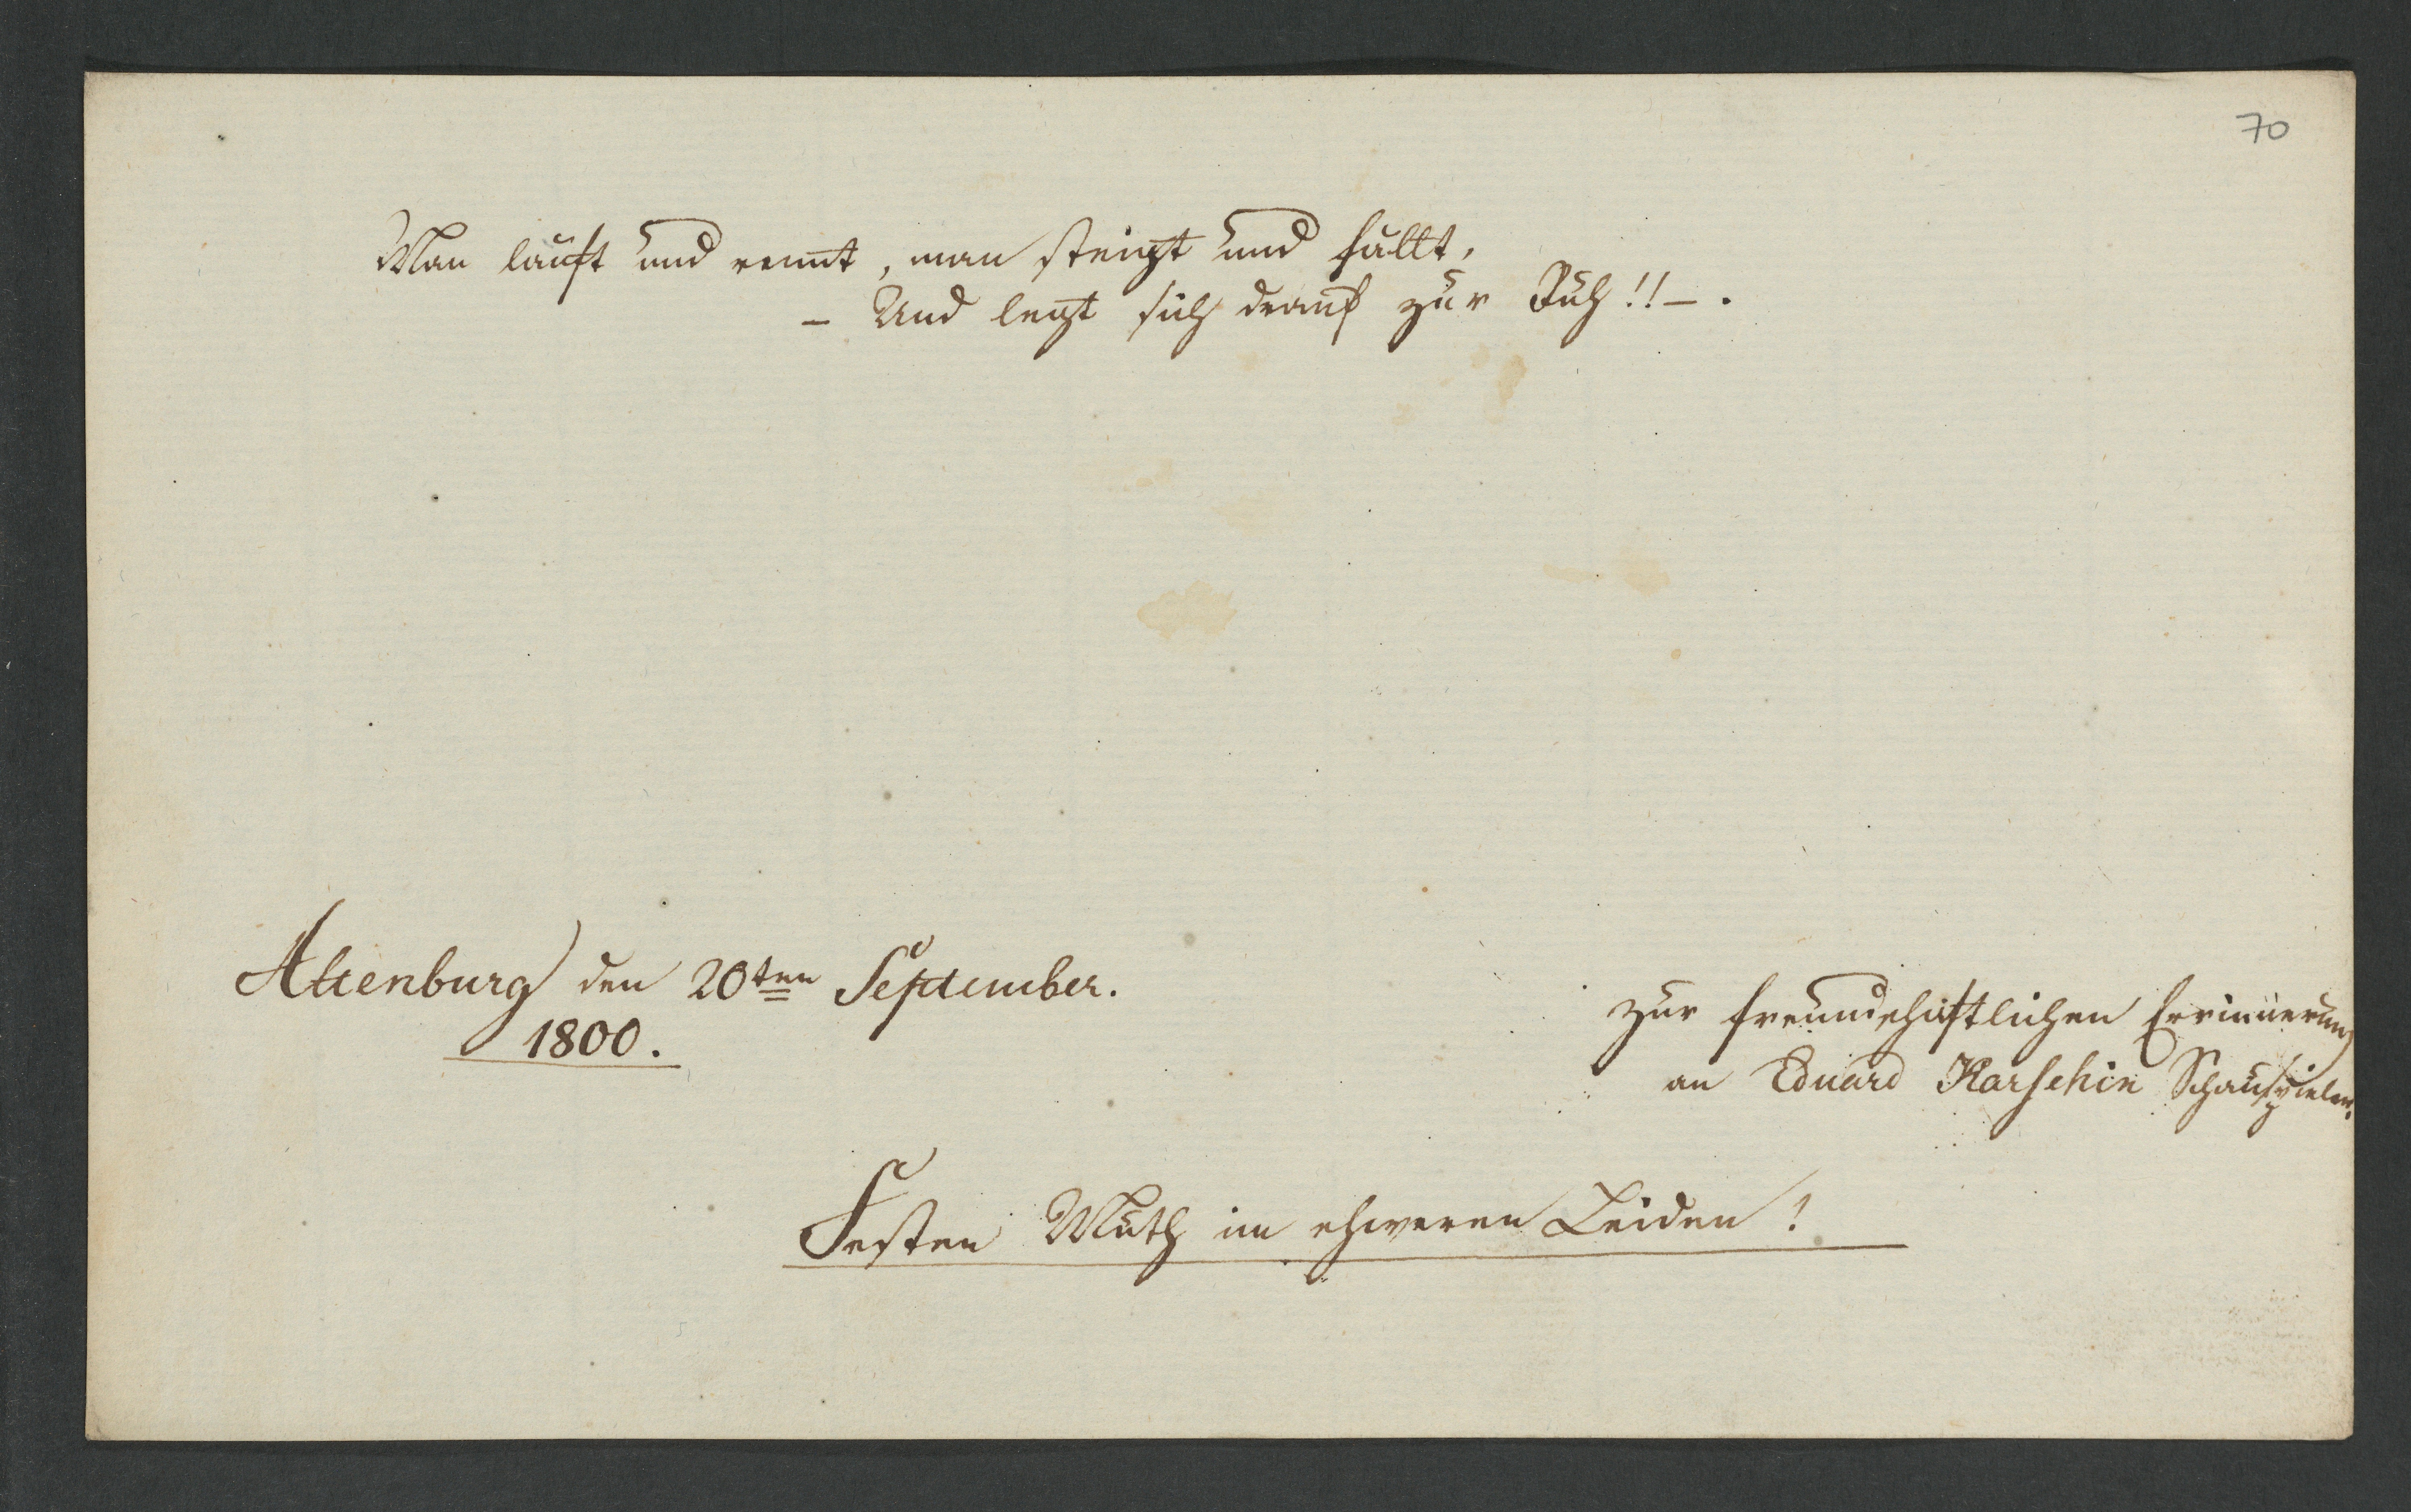 70
Man läuft und rennt, man steigt und fällt,
– Und legt sich drauf zur Ruh!! – .
Altenburg den 20ten September.
1800.
zur freundschaftlichen Errinnerung
an Eduard Karschin Schauspieler.
Festen Muth im schweren Leiden!